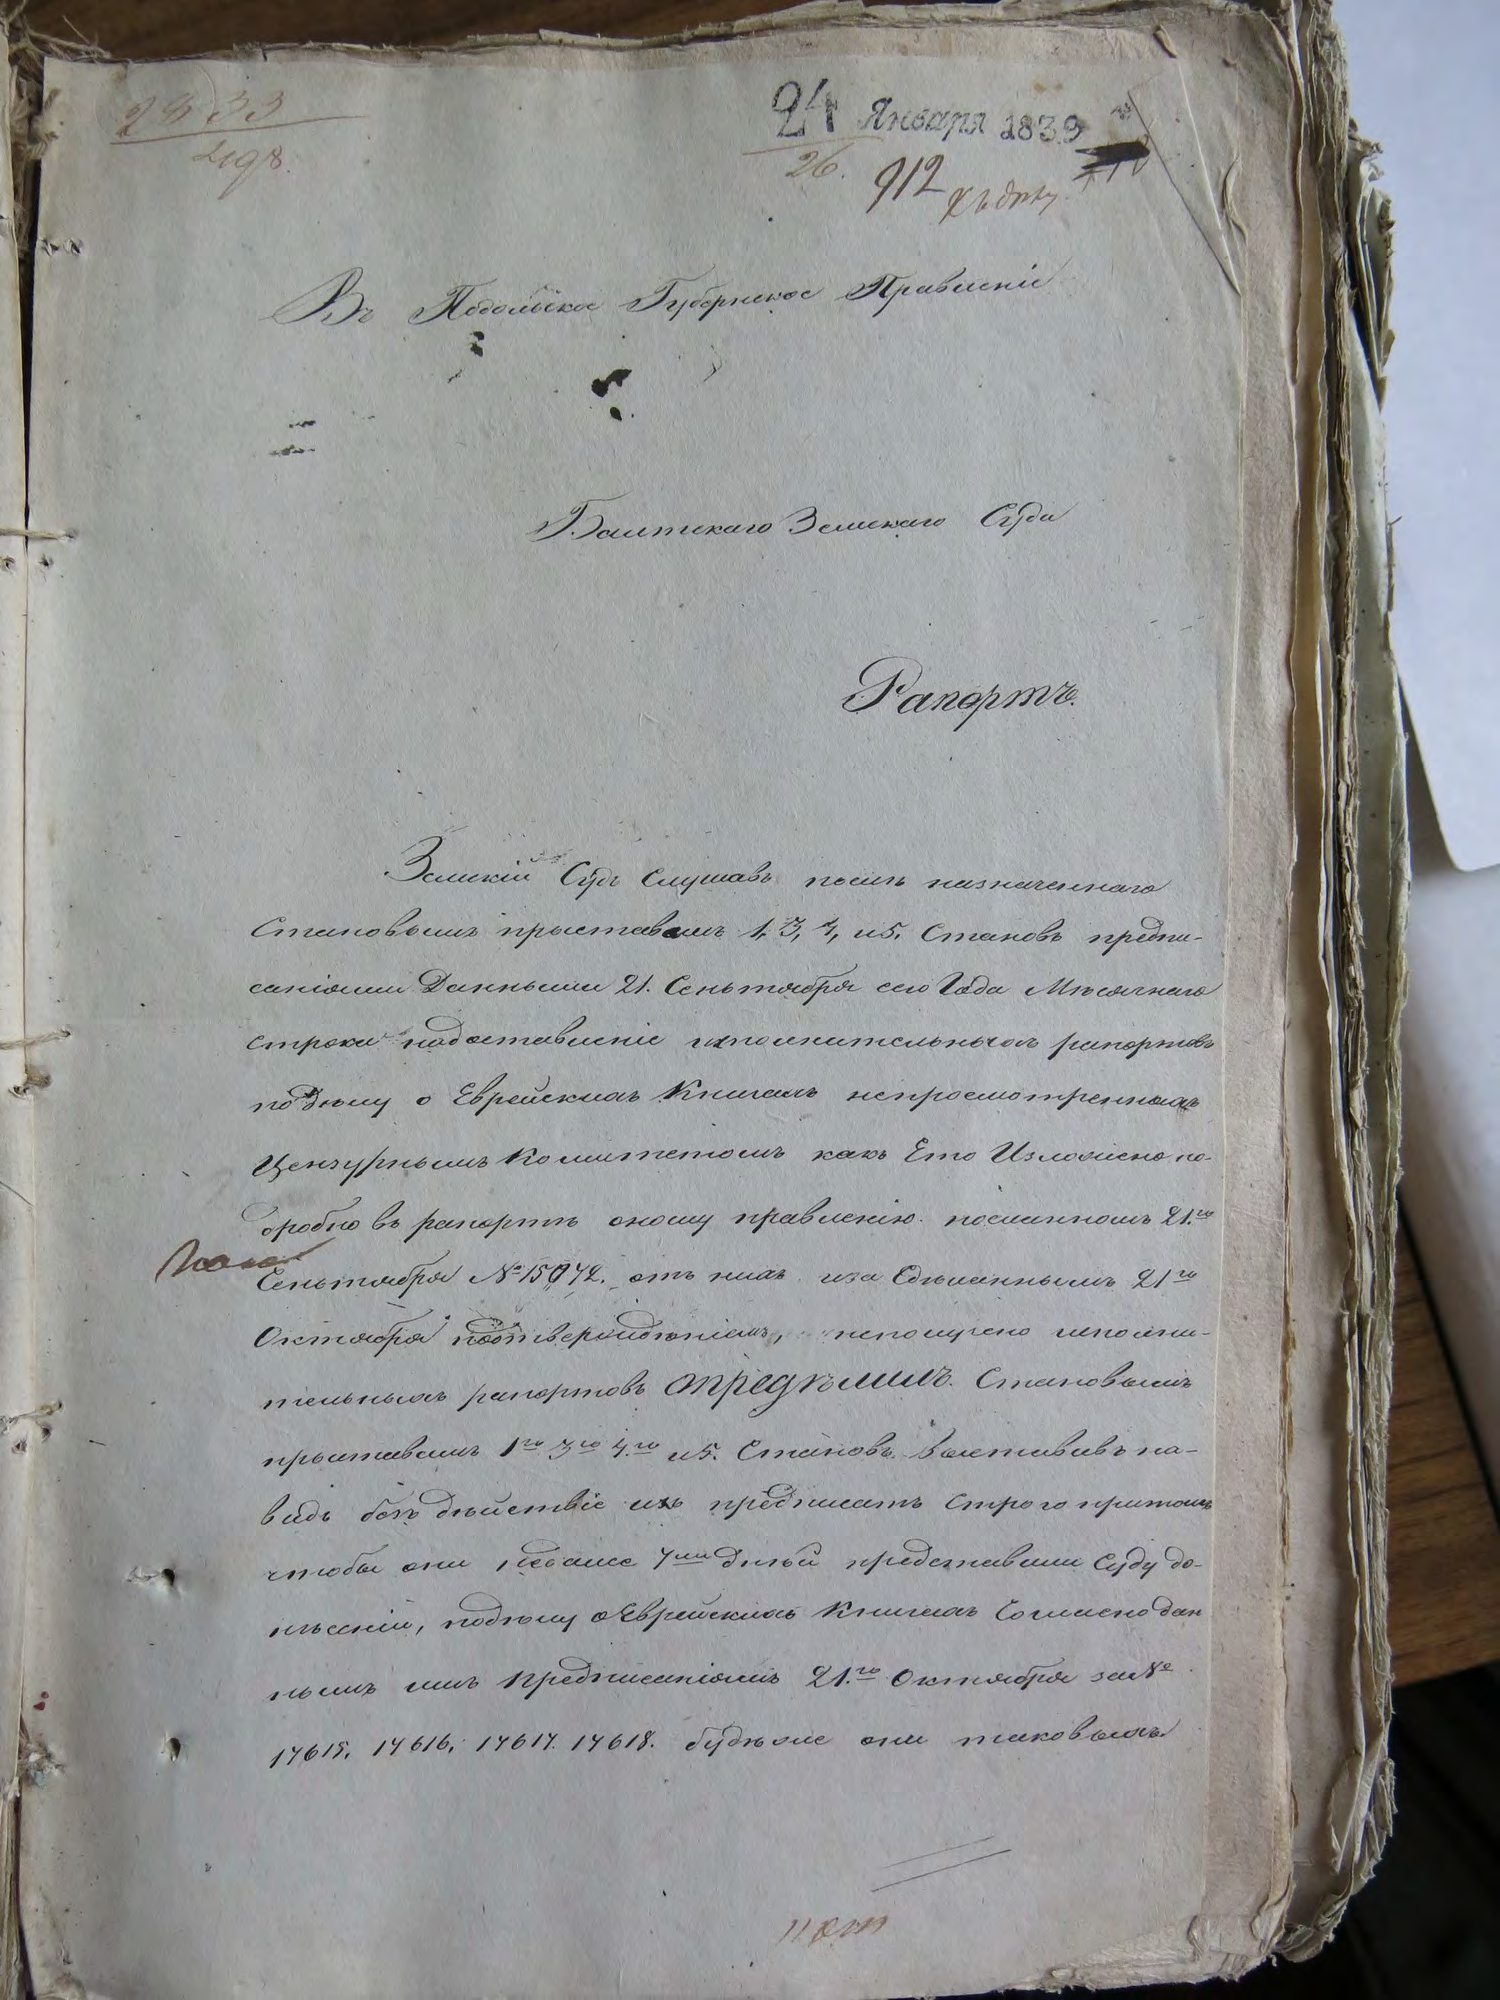 2833
24 Января 1839
26.
912 къ дѣлу
Въ Подольское Губернское Правленіе
Балтскаго Земскаго Суда
Рапортъ.
Земскій Судъ слушавъ послѣ назначеннаго
Становымъ приставамъ 1, 3, 4, и 5. Становъ предпи-
саніями данными 21. Сеньтября сего Года Мѣсячнаго
строка надоставленіе исполнительныхъ рапортовъ
по дѣлу о Еврейскихъ Книгахъ непросмотренныхъ
Цензурнымъ Комитетомъ какъ Ето Изложено по-
дробно въ рапортѣ оному правленію посланномъ 21.го
Сеньтября № 15072. отъ нихъ и за Сдѣланнымъ 21го
Октября подтвержденіемъ, неполучено исполни-
тельныхъ рапортовъ опредѣлилъ. Становымъ
приставамъ 1го 3го 4го и 5. Становъ выставивъ на-
видъ бездѣйствіе ихъ предписать строго притомъ
чтобы они недалее 7ми дней представили Суду до-
несеній, подѣлу о Еврейскихъ Книгахъ Согласно дан
нымъ имъ предписаніямъ 21.го Октября за №
17615, 17616, 17617. 17618. будѣже они таковыхъ